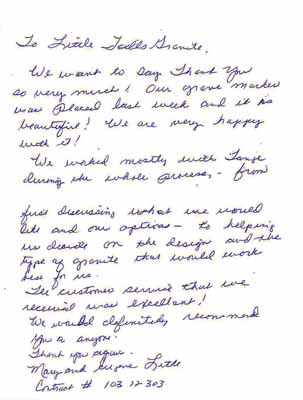 To Little Falls Granite,
We want to say Thank You
so very much! Our grave marker
was placed last week and it is
beautiful! We are very happy
with it!
We worked mostly with
during the whole process, - from
first discussing what we would
like and our options - to helping
us decide on the design and the
type of granite that would work
best for us.
The customer service that we
received was excellent!
We would definitely recommend
you to anyone.
Thank you again.
Mary and Eugene Little
Contract # 103 12303